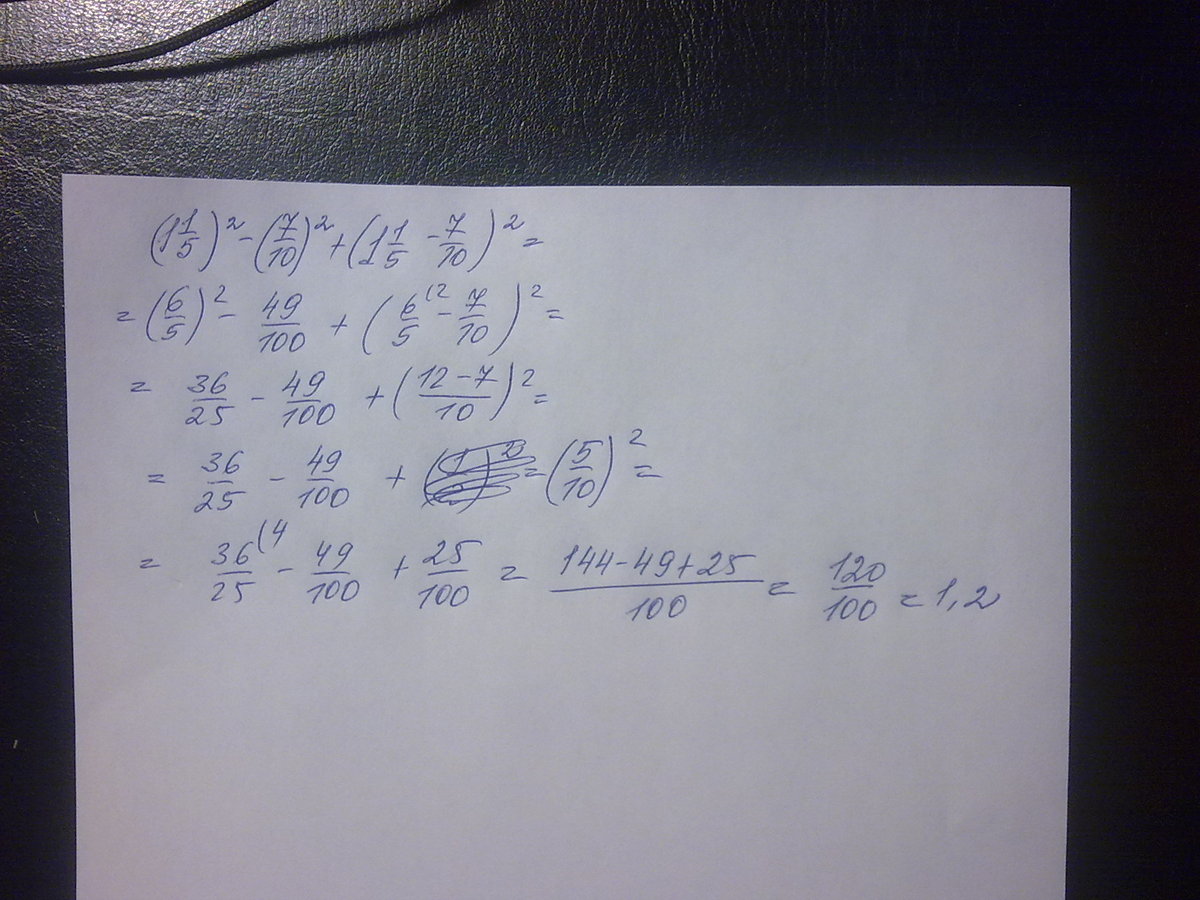 (1 1/5)² - (7/10)² + (1 1/5 - 7/10)² =
= (6/5)² - 49/100 + (6/5 (2 - 7/10)² =
= 36/25 - 49/100 + ((12-7)/10)² =
= 36/25 - 49/100 + = (5/10)² =
= 36/25 (4 - 49/100 + 25/100 = (144-49+25)/100 = 120/100 = 1,2